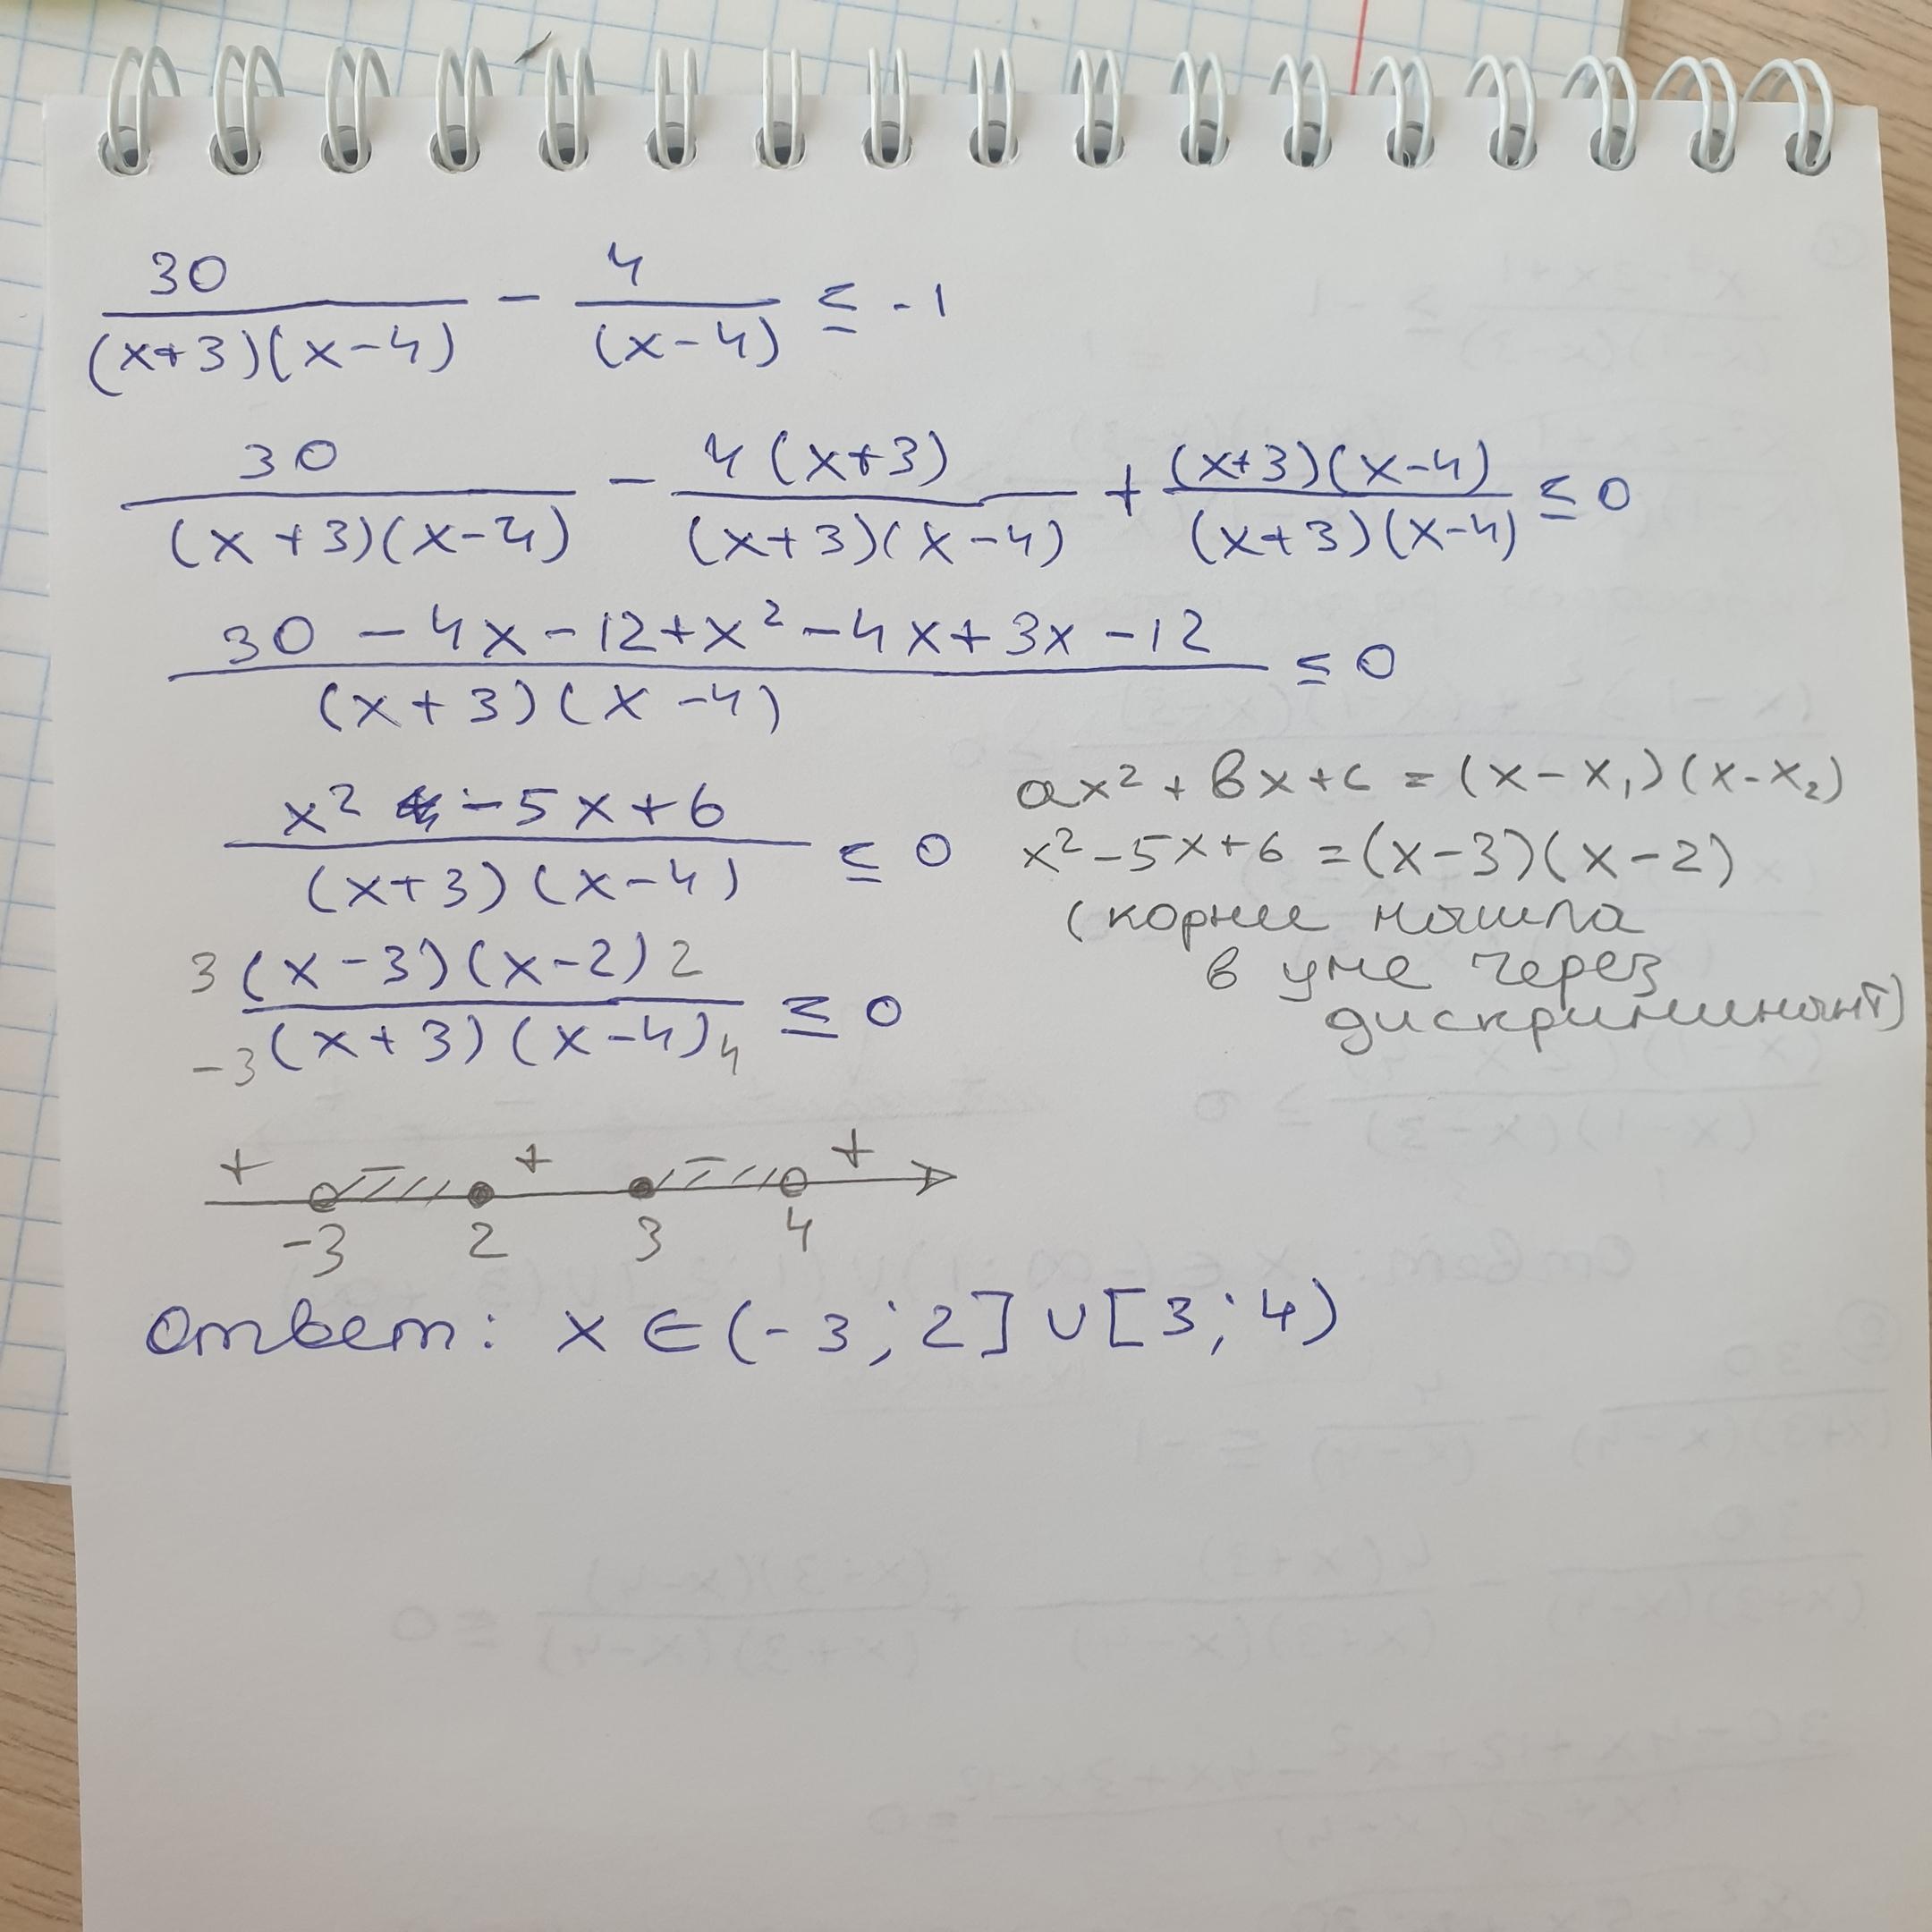 30/((x+3)(x-4)) - 4/(x-4) ≤ -1
30/((x+3)(x-4)) - 4(x+3)/((x+3)(x-4)) + (x+3)(x-4)/((x+3)(x-4)) ≤ 0
(30 - 4x - 12 + x² - 4x + 3x - 12)/((x+3)(x-4)) ≤ 0
(x² - 5x + 6)/((x+3)(x-4)) ≤ 0
ax² + bx + c = (x - x₁)(x - x₂)
x² - 5x + 6 = (x-3)(x-2)
(корни нашла
в уме через
дискриминант)
3 (x-3)(x-2) 2
-3 (x+3)(x-4) 4 ≤ 0
+ - + - +
-3 2 3 4
Ответ: x ∈ (-3; 2] ∪ [3; 4)